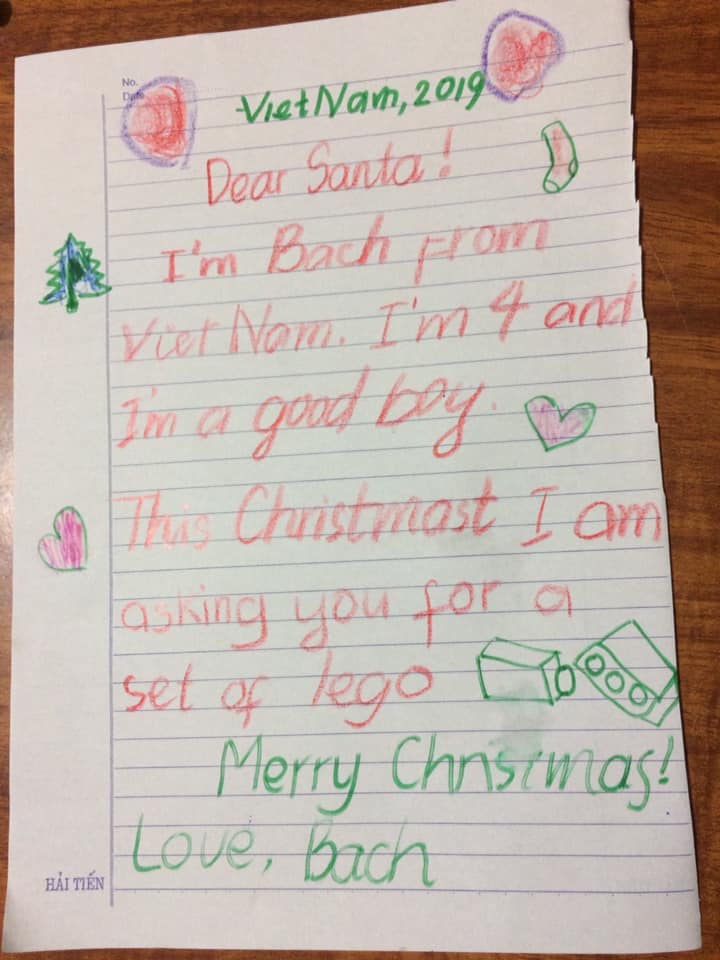 No.
Date
VietNam, 2019
Dear Santa!
I'm Bach from
Viet Nam. I'm 4 and
I'm a good boy.
This Christmast I am
asking you for a
set of lego
Merry Christmas!
Love, Bach
HẢI TIẾN